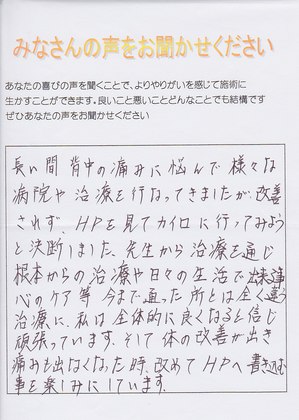 みなさんの声をお聞かせください
あなたの喜びの声を聞くことで、よりやりがいを感じて施術に
生かすことができます。良いこと悪いことどんなことでも結構です
ぜひあなたの声をお聞かせください
長い間背中の痛みに悩んで様々な
病院や治療を行なってきましたが改善
されず、HPを見てカイロに行ってみよう
と決断しました。先生から治療を通じ
根本からの治療や日々の生活で出来る
心のケア等 今まで通った所とは全く違う
治療に、私は全体的に良くなると信じ
頑張っています。そして体の改善が出き
痛みも出なくなった時、改めてHPへ書き込む
事を楽しみにしています。